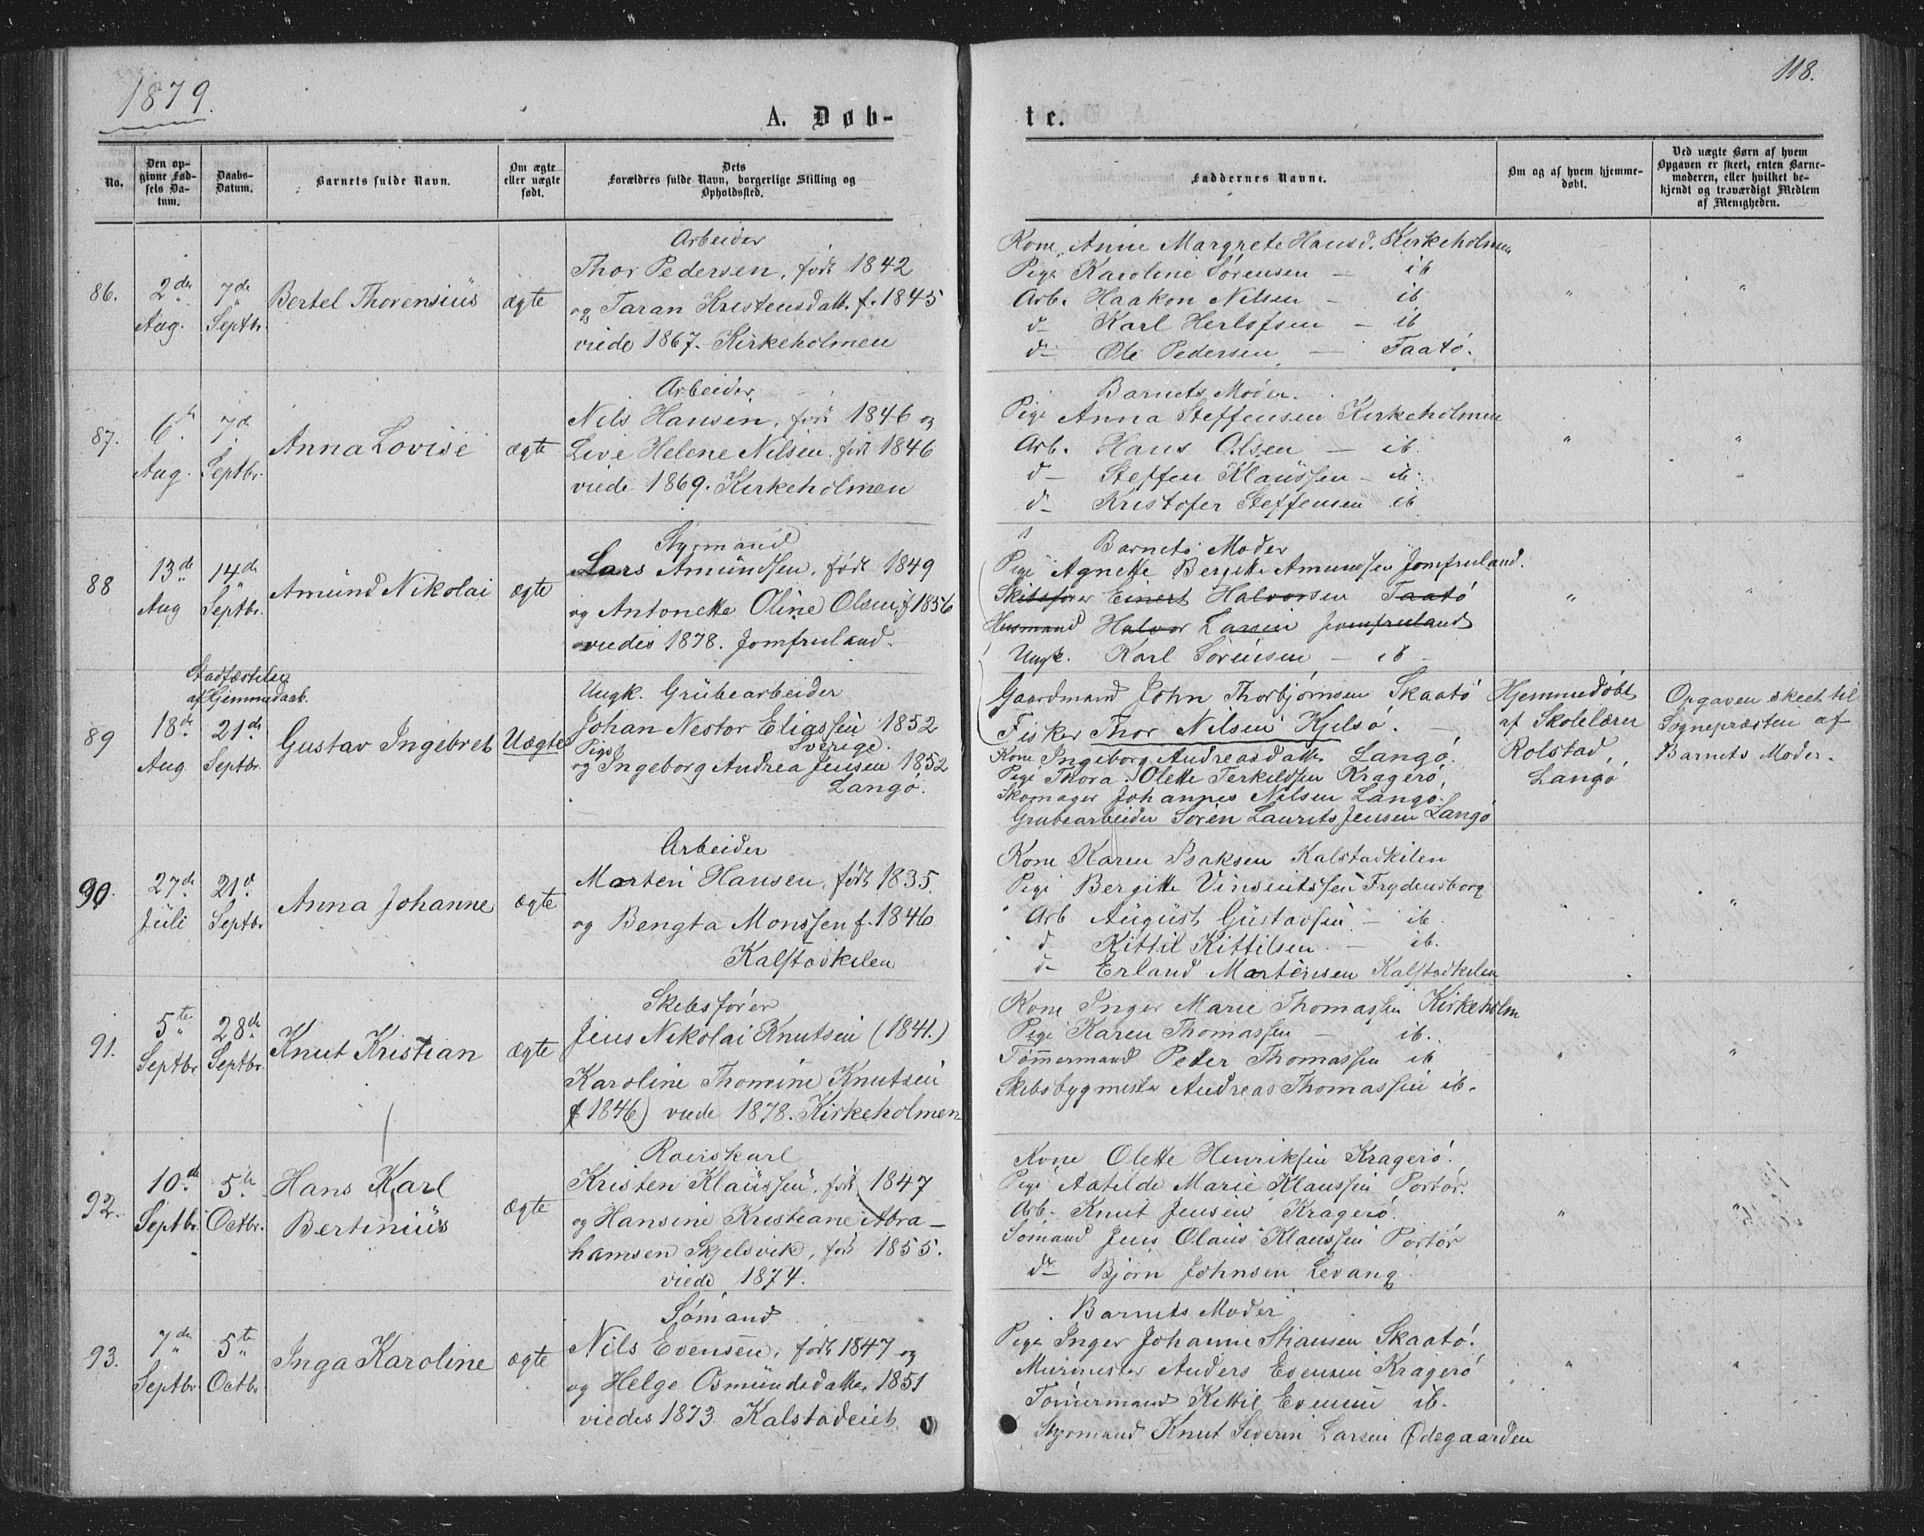 1879.
118.
A. Døb-
te.
No.
Den op-
givne Fød-
sels Da-
tum.
Daabs-
Datum.
Barnets fulde Navn.
Om ægte
eller uægte
født.
Dets
Forældres fulde Navn, borgerlige Stilling og
Opholdssted.
Faddernes Navne.
Om og af hvem hjemme-
døbt.
Ved uægte Børn af hvem
Opgaven er skeet, enten Barne-
moderen, eller hvilket be-
kjendt og troværdigt Medlem
af Menigheden.
86.
2de
Aug.
7de
Septbr.
Bertel Thorensius
ægte
Arbeider
Thor Pedersen, født 1842
og Taran Kristensdatt. f. 1845
viede 1867. Kirkeholmen
Kone Anne Margrete Hansd. Kirkeholmen
Pige Karoline Sørensen — ib
Arb. Haakon Nilsen — ib
d— Karl Herlofsen — ib
d— Ole Pedersen — Taatø.
87.
6te
Aug.
7de
Septbr.
Anna Lovise
ægte
Arbeider
Nils Hansen, født 1846 og
Live Helene Nilsen født 1846
viede 1869. Kirkeholmen
Barnets Moder.
Pige Anna Steffensen Kirkeholmen
Arb. Hans Olsen — ib.
d— Steffen Klaussen — ib.
d— Kristofer Steffensen ib
88
13de
Aug
14de
Septbr.
Amund Nikolai
ægte
Styrmand
Lars Amundsen, født 1849
og Antonette Oline Olsen f 1856
viedes 1878. Jomfruland.
Barnets Moder
Pige Agnette Bergitte Amundsen Jomfruland.
Skibsfører Einert Halvorsen Taatø
Husmand Halvor Larsen Jomfruland
Ungk. Karl Sørensen — ib
Gaardmand John Thorbjørnsen Skaatø
Fisker Thor Nilsen Kjelsø.
89
Stadfæstelse
af Hjemmedaab.
18de
Aug
21de
Septbr.
Gustav Ingebret
Uægte
Ungk. Grubearbeider
Johan Nestor Eliassen 1852
Sverige.
Pige
og Ingeborg Andrea Jensen 1852
Langø.
Kone Ingeborg Andreasdatter Langø.
Pige Thora Olette Terkildsen Kragerø,
Skomager Johannes Nilsen Langø.
Grubearbeider Søren Laurits Jensen Langø
Hjemmedøbt
af Skolelærer
Rolstad,
Langø
Opgaven skeet til
Sognepræsten af
Barnets Moder.
90.
27de
Juli
21de
Septbr.
Anna Johanne
ægte
Arbeider
Morten Hansen, født 1835.
og Bengta Monssen f. 1846
Kalstadkilen
Kone Karen Isaksen Kalstadkilen
Pige Bergitte Vinsentssen Frydensborg
Arb August Gustavsen — ib.
d. Kittil Kittilsen — ib.
d— Erland Mortensen Kalstadkilen
91.
5te
Septbr
28de
Septbr.
Knut Kristian
ægte
Skibsfører
Jens Nikolai Knutsen (1841.)
Karoline Thomine Knutsen
f 1846) viede 1878. Kirkeholmen
Kone Inger Marie Thomassen Kirkeholm
Pige Karen Thomassen — ib.
Tømmermand Peder Thomassen ib
Skibsbygmester Andreas Thomassen ib.
92.
10de
Septbr.
5te
Octbr.
Hans Karl
Bertinius
ægte
Roerskarl
Kristen Klaussen, født 1847
og Hansine Kristiane Abra-
hamsen Skjelsvik, født 1855.
viede 1874.
Kone Olette Henriksen Kragerø.
Pige Matilde Marie Klaussen Portør.
Arb. Knut Jensen Kragerø.
Sømand Jens Olaus Klaussen Portør
d— Bjørn Johnsen Levang
93.
7de
Septbr.
5te
Octbr.
Inga Karoline
ægte
Sømand
Nils Evensen, født 1847 og
og Helge Osmundsdatter 1851
viedes 1873 Kalstadeiet
Barnets Moder
Pige Inger Johanne Stiansen Skaatø.
Murmester Anders Evensen Kragerø
Tømmermand Kittil Evensen ib.
Styrmand Knut Severin Larsen Ødegaarden